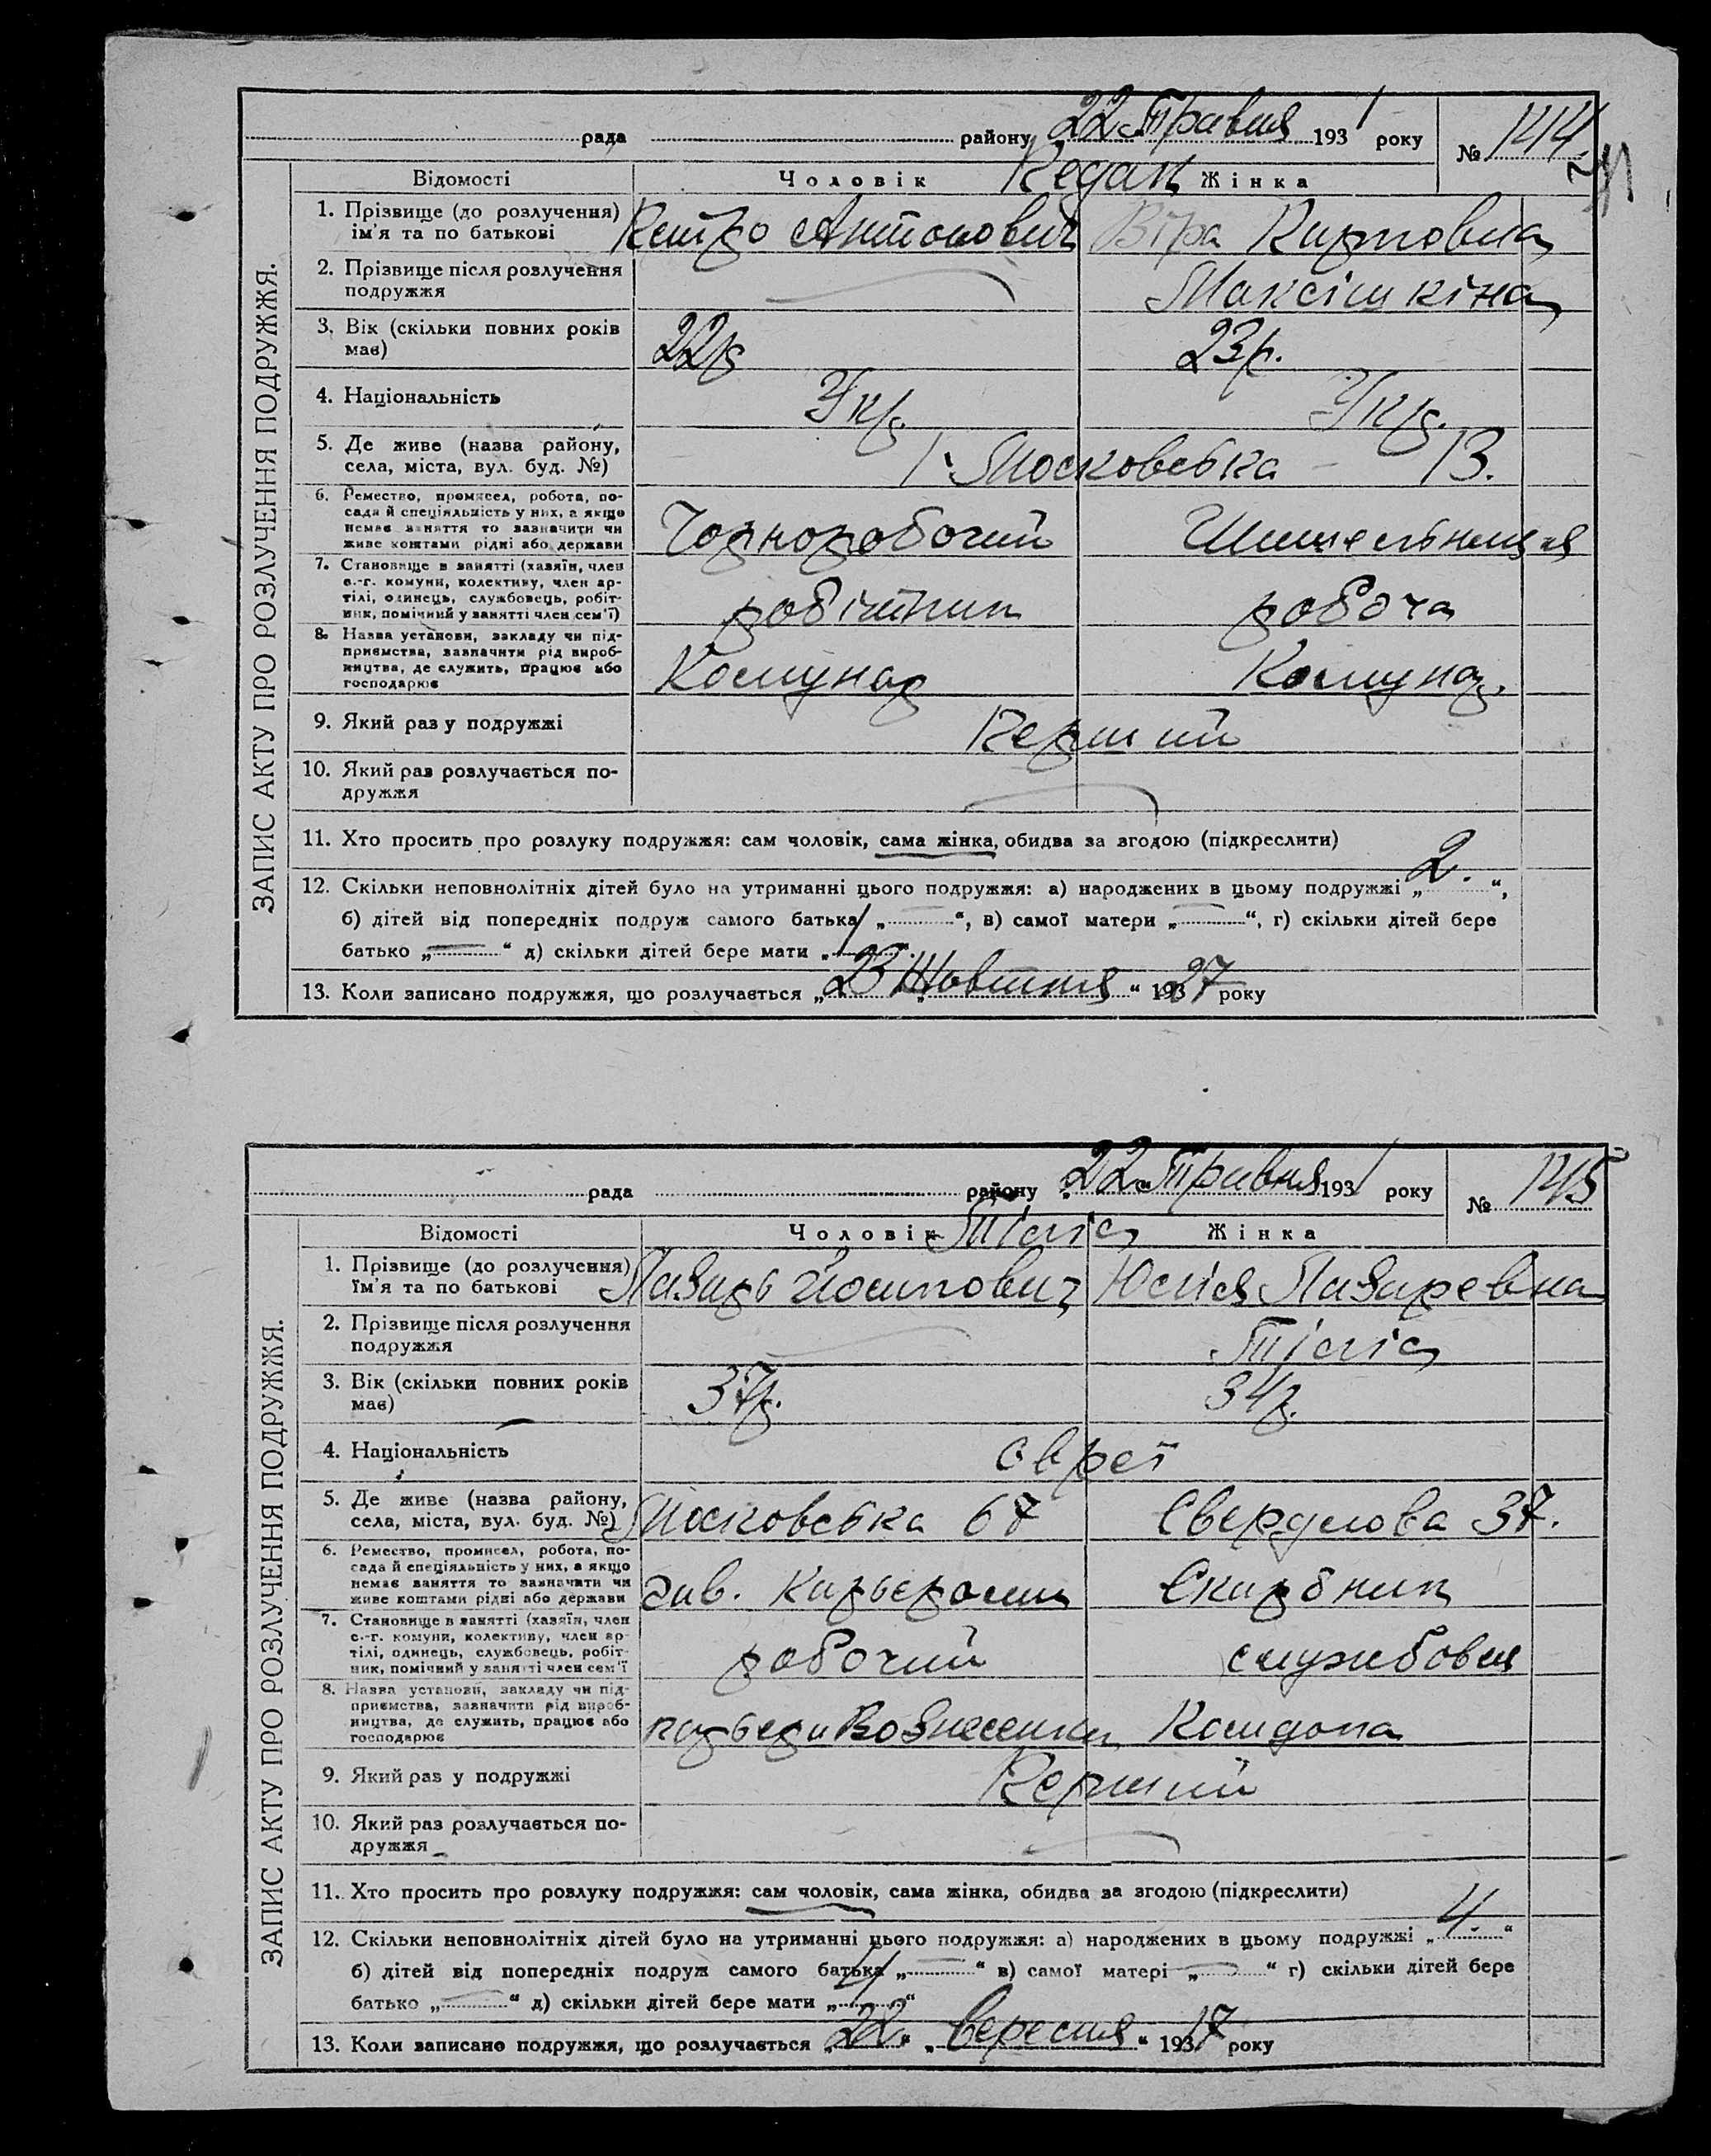 рада району 22 Травня 1931 року № 144.
ЗАПИС АКТУ ПРО РОЗЛУЧЕННЯ ПОДРУЖЖЯ.
Відомості Чоловік Редан Жінка
1. Прізвище (до розлучення) ім'я та по батькові Петро Антонович Віра Карповна
2. Прізвище після розлучення подружжя Максішкіна
3. Вік (скільки повних років має) 22р 23р.
4. Національність Укр. Укр.
5. Де живе (назва району, села, міста, вул. буд. №) Московська – 13.
6. Ремество, промисел, робота, по-
сада й спеціяльність у них, а якщо
немає заняття то зазначити чи
живе коштами рідні або держави Чорноробочий
7. Становище в занятті (хазяїн, член
с.-г. комуни, колективу, член ар-
тілі, одинець, службовець, робіт-
ник, помічний у занятті член сем'ї) робітник робоча
8. Назва установи, закладу чи під-
приємства, зазначити рід вироб-
ництва, де служить, працює або
господарює Комунар Комунар.
9. Який раз у подружжі Перший
10. Який раз розлучається по-
дружжя
11. Хто просить про розлуку подружжя: сам чоловік, сама жінка, обидва за згодою (підкреслити)
12. Скільки неповнолітніх дітей було на утриманні цього подружжя: а) народжених в цьому подружжі „ 2. “,
б) дітей від попередніх подруж самого батька „ — “, в) самої матери „ — “, г) скільки дітей бере
батько „ — “ д) скільки дітей бере мати „
13. Коли записано подружжя, що розлучається „ 23 Жовтня “ 193 27 року
рада району 22 Травня 1931 року № 145
ЗАПИС АКТУ ПРО РОЗЛУЧЕННЯ ПОДРУЖЖЯ.
Відомості Чоловік Тіліс Жінка
1. Прізвище (до розлучення) їм'я та по батькові Лазарь Йосипович Юлія Лазаревна
2. Прізвище після розлучення подружжя Тіліс
3. Вік (скільки повних років має) 37р. 34р.
4. Національність євреї
5. Де живе (назва району, села, міста, вул. буд. №) Московська 67 Свердлова 37.
6. Ремество, промисел, робота, по-
сада й спеціяльність у них, а якщо
немає заняття то зазначити чи
живе коштами рідні або держави зав. Карьером Скарбник
7. Становище в занятті (хазяїн, член
с.-г. комуни, колективу, член ар-
тілі, одинець, службовець, робіт-
ник, помічний у занятті член сем'ї робочий службовця
8. Назва установи, закладу чи під-
приємства, зазначити рід вироб-
ництва, де служить, працює або
господарює Вознесенки
9. Який раз у подружжі Перший
10. Який раз розлучається по-
дружжя
11. Хто просить про розлуку подружжя: сам чоловік, сама жінка, обидва за згодою (підкреслити)
12. Скільки неповнолітніх дітей було на утриманні цього подружжя: а) народжених в цьому подружжі „ 4. “
б) дітей від попередніх подруж самого батька „ — “ в) самої матері „ — “ г) скільки дітей бере
батько „ — “ д) скільки дітей бере мати „ 4 “
13. Коли записано подружжя, що розлучається „ 22 “ „ Вересня “ 193 17 року